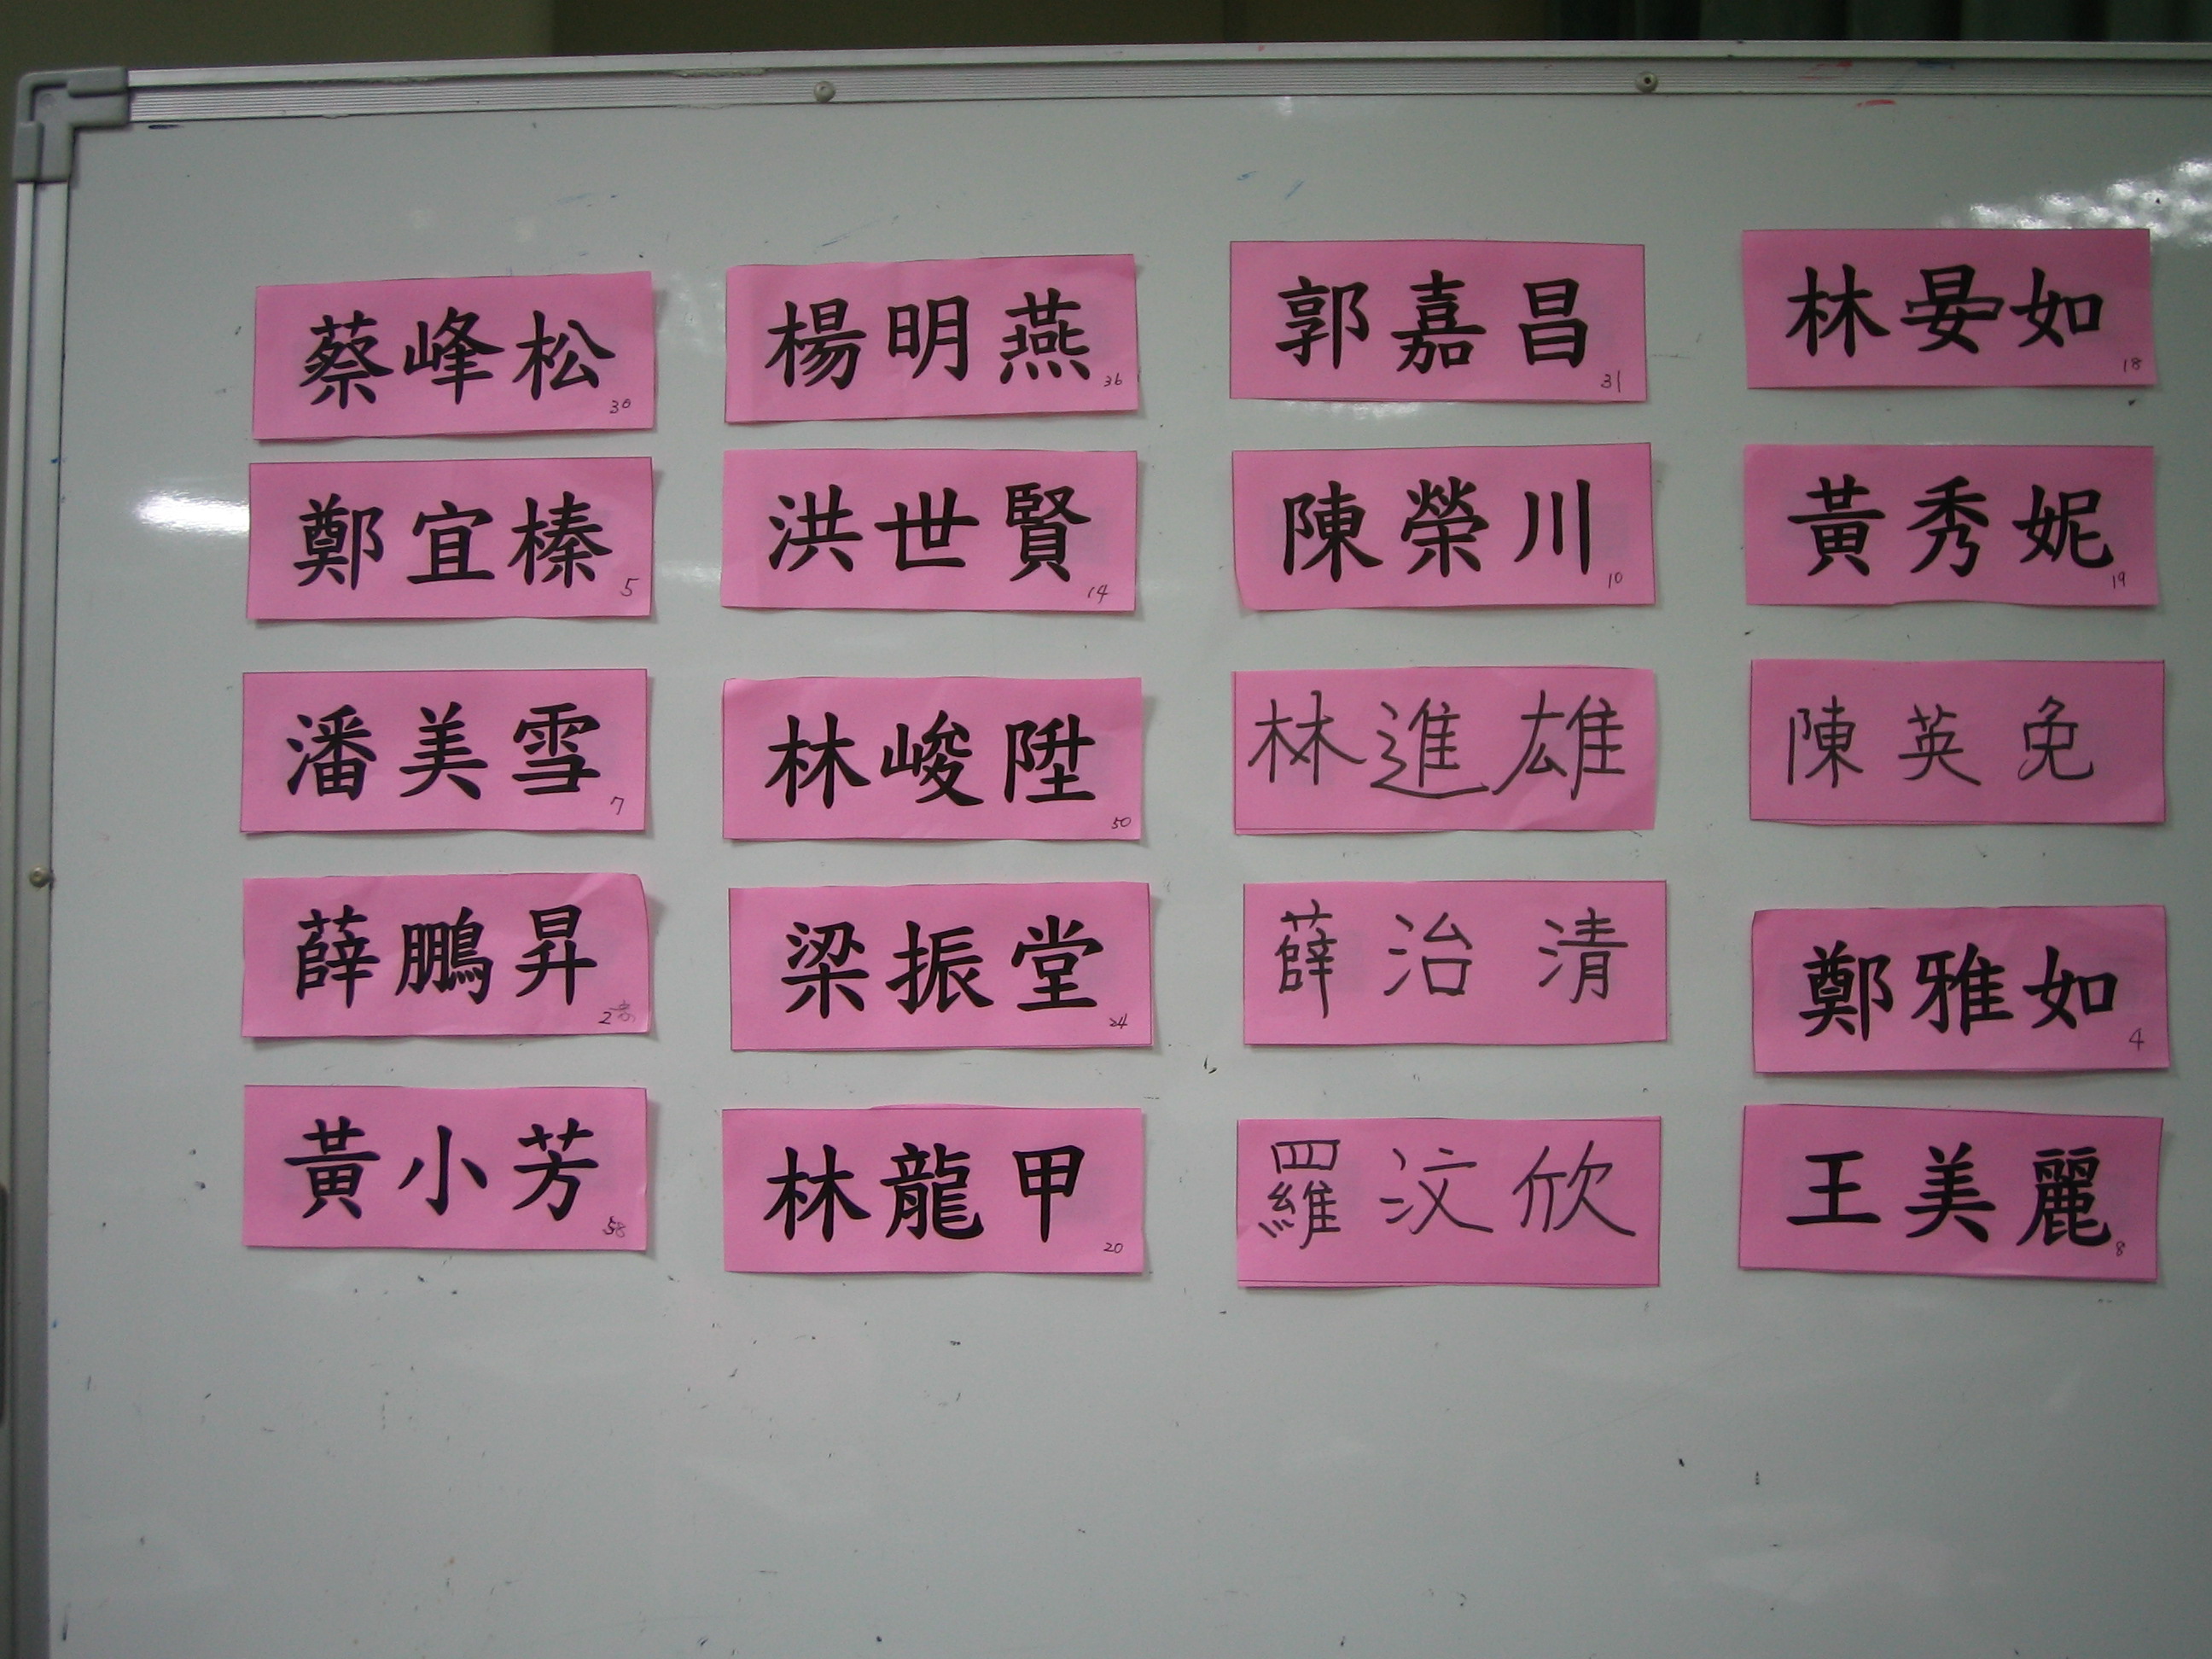 蔡峰松 30
楊明燕 36
郭嘉昌 31
林晏如 18
鄭宜榛 5
洪世賢 14
陳榮川 10
黃秀妮 19
潘美雪 7
林峻陞 50
林進雄
陳英免
薛鵬昇
梁振堂 24
薛治清
鄭雅如 4
黃小芳 58
林龍甲 20
羅汶欣
王美麗 8